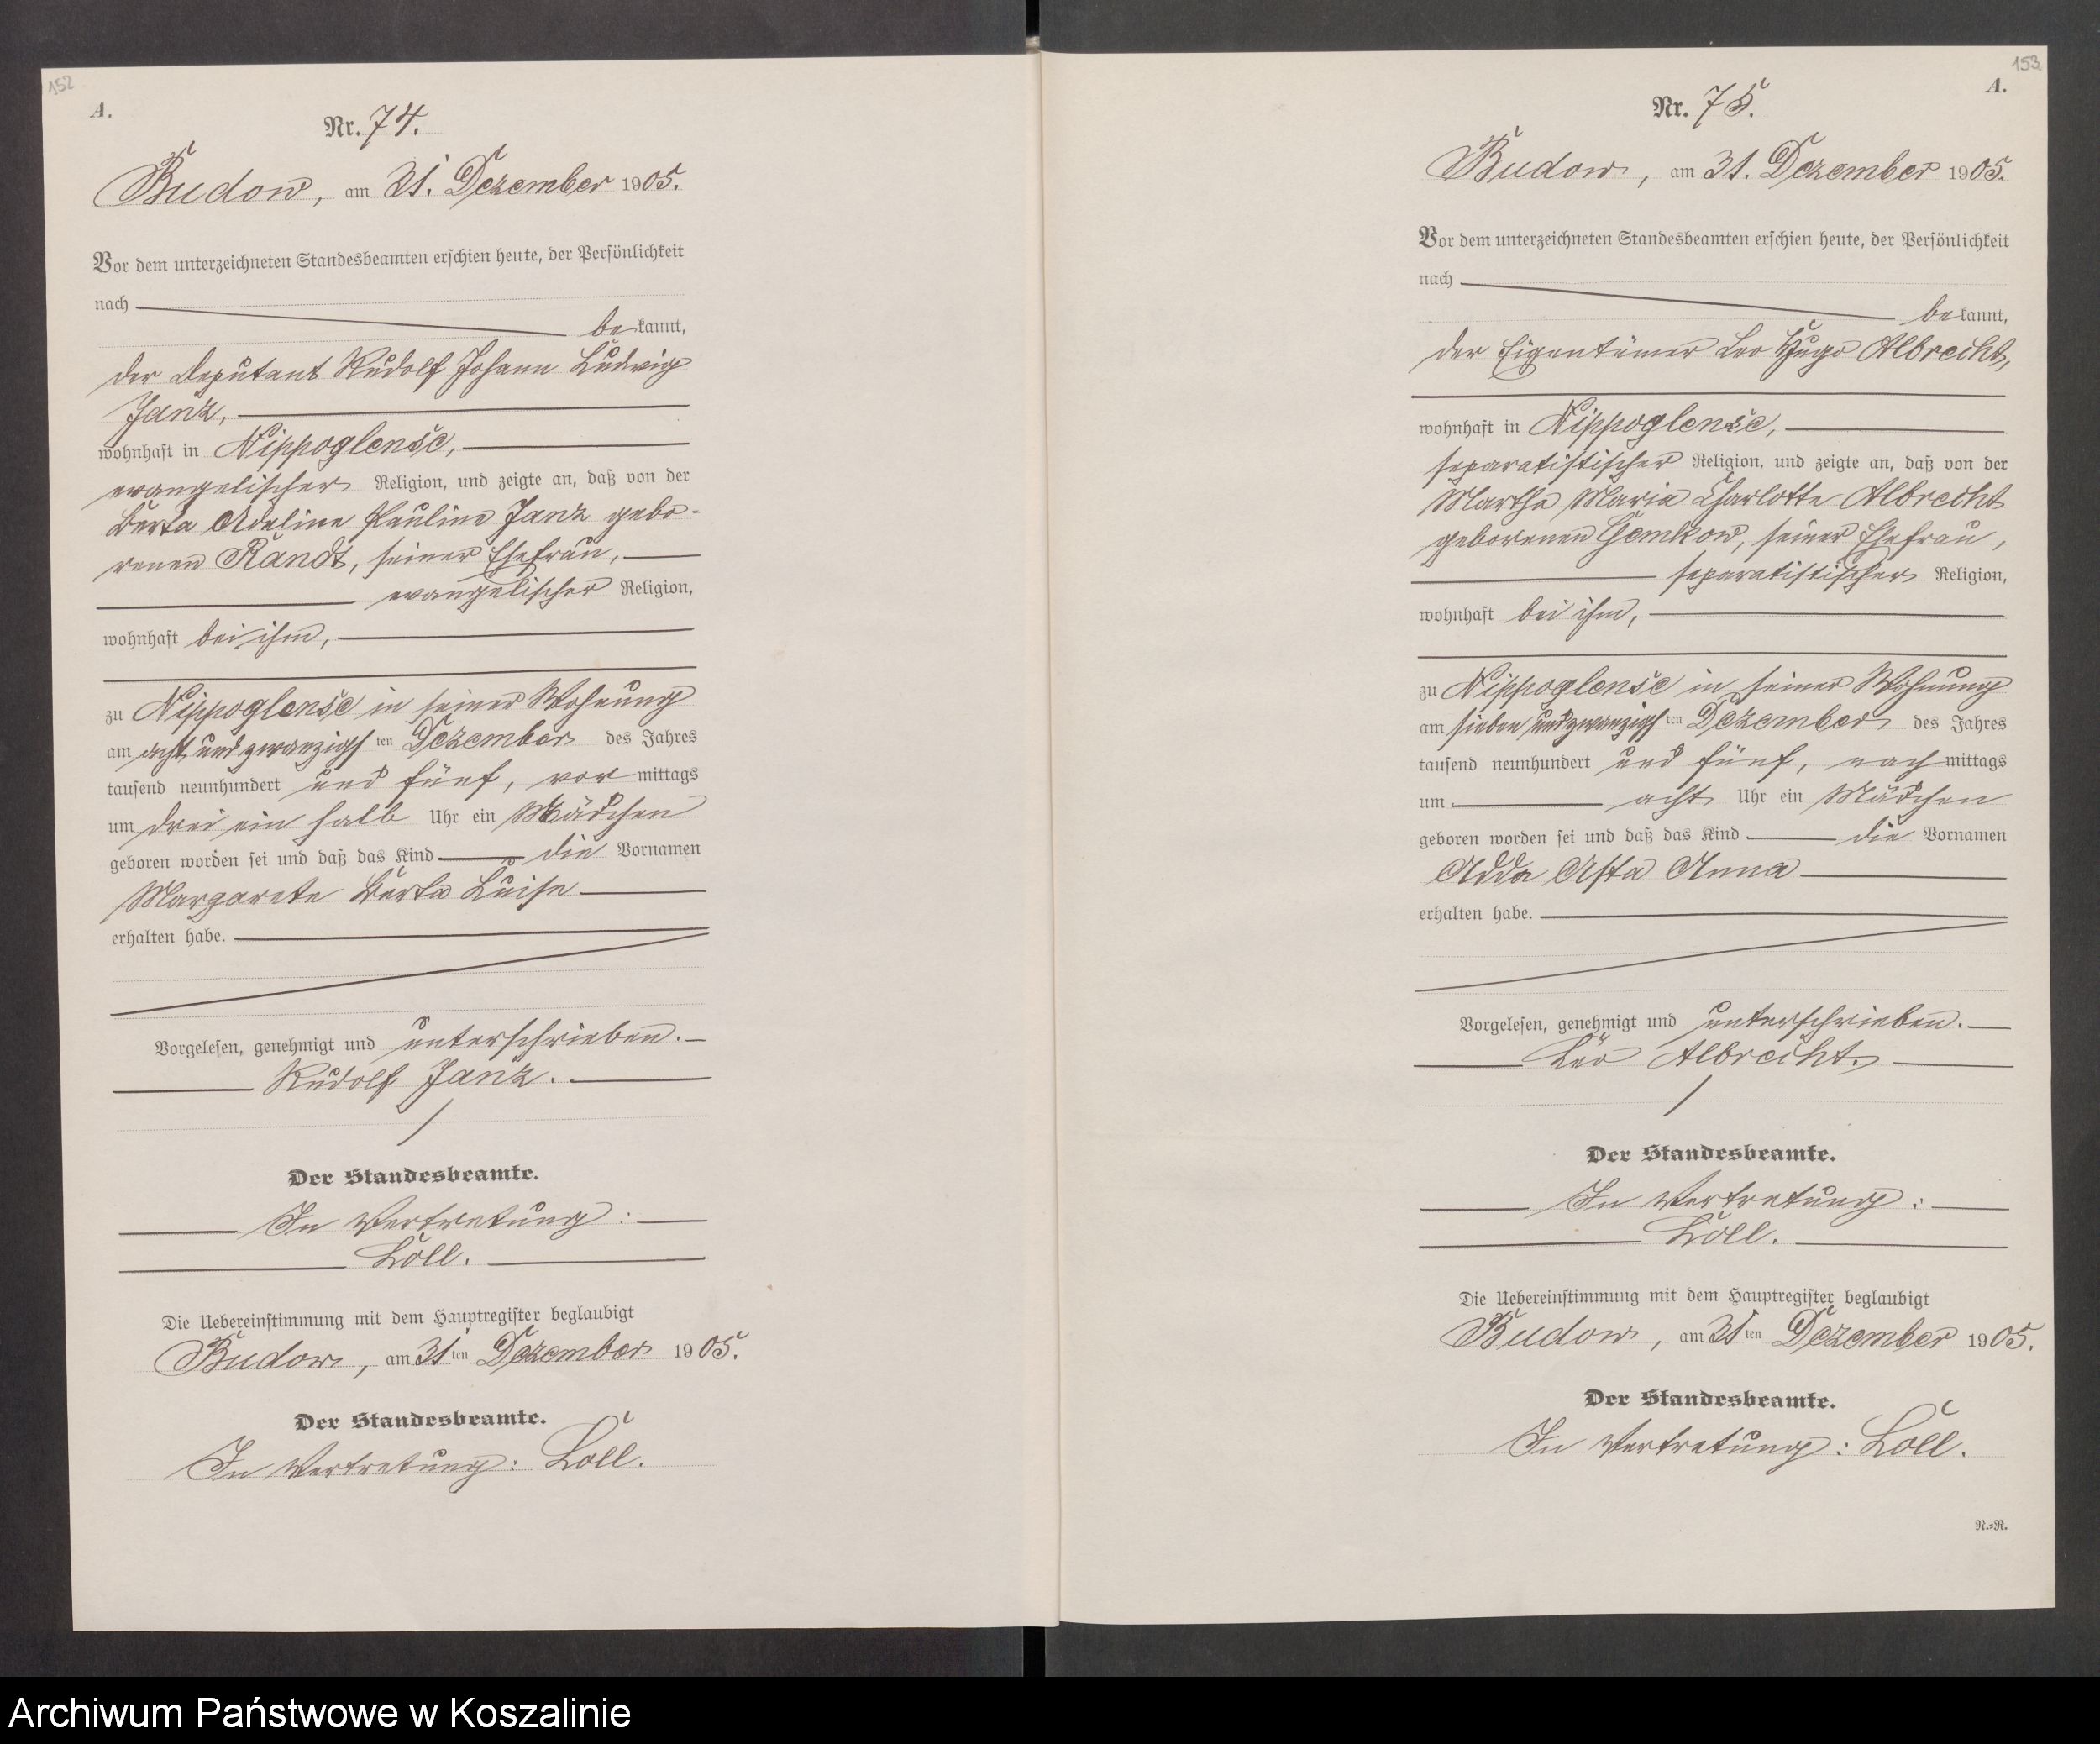 152
A.
Nr. 74.
Budow, am 31. Dezember 1905.
Vor dem unterzeichneten Standesbeamten erschien heute, der Persönlichkeit
nach
bekannt,
der Deputant Rudolf Johann Ludwig
Janz,
wohnhaft in Nippoglense,
evangelischer Religion, und zeigte an, daß von der
Berta Adeline Pauline Janz gebo-
renen Randt, seiner Ehefrau,
evangelischer Religion,
wohnhaft bei ihm,
zu Nippoglense in seiner Wohnung
am acht und zwanzigsten Dezember des Jahres
tausend neunhundert und fünf, vormittags
um drei ein halb Uhr ein Mädchen
geboren worden sei und daß das Kind die Vornamen
Margarete Berta Luise
erhalten habe.
Vorgelesen, genehmigt und unterschrieben.
Rudolf Janz.
Der Standesbeamte.
In Vertretung:
Löll.
Die Uebereinstimmung mit dem Hauptregister beglaubigt
Budow, am 31ten Dezember 1905.
Der Standesbeamte.
In Vertretung: Löll.
153
A.
Nr. 75.
Budow, am 31. Dezember 1905.
Vor dem unterzeichneten Standesbeamten erschien heute, der Persönlichkeit
nach
bekannt,
der Eigentümer Leo Hugo Albrecht,
wohnhaft in Nippoglense,
separatistischer Religion, und zeigte an, daß von der
Martha Maria Charlotte Albrecht
geborenen Gemkow, seiner Ehefrau,
separatistischer Religion,
wohnhaft bei ihm,
zu Nippoglense in seiner Wohnung
am sieben und zwanzigsten Dezember des Jahres
tausend neunhundert und fünf, nachmittags
um acht Uhr ein Mädchen
geboren worden sei und daß das Kind die Vornamen
Adda Asta Anna
erhalten habe.
Vorgelesen, genehmigt und unterschrieben.
Leo Albrecht.
Der Standesbeamte.
In Vertretung:
Löll.
Die Uebereinstimmung mit dem Hauptregister beglaubigt
Budow, am 31ten Dezember 1905.
Der Standesbeamte.
In Vertretung: Löll.
R.=R.
Archiwum Państwowe w Koszalinie